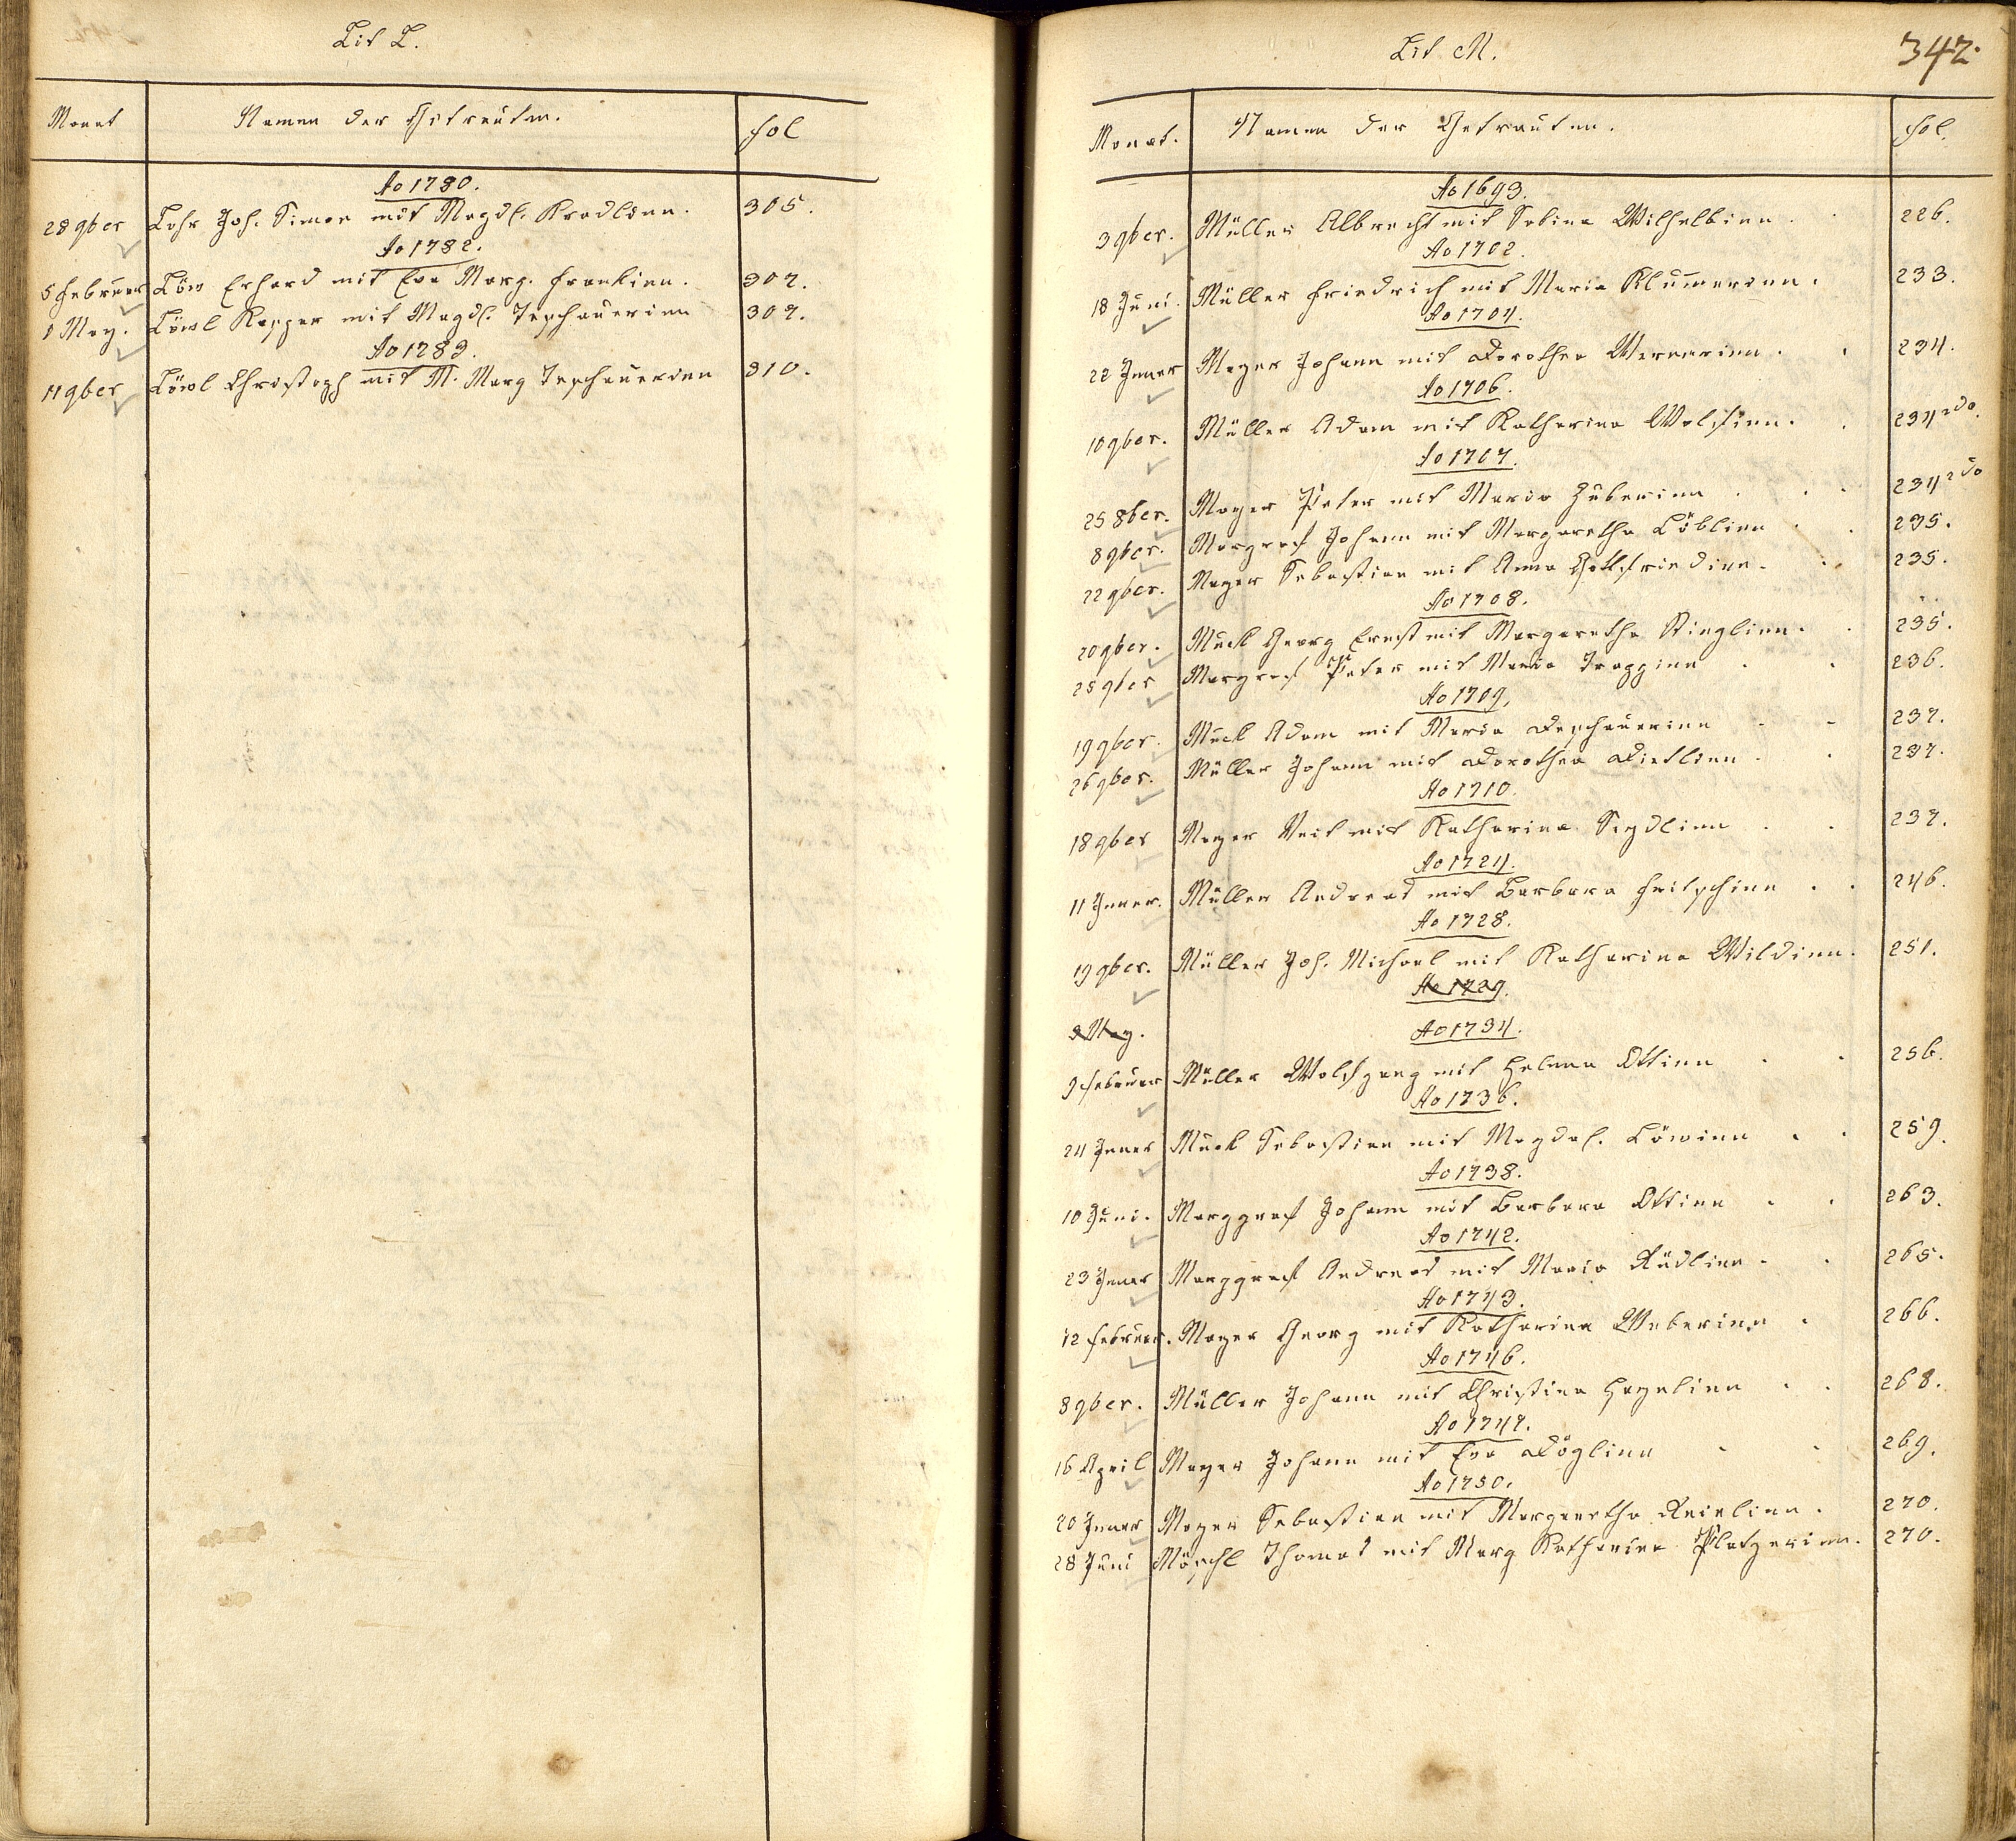 Lit L.
Monat Namen der Getrauten. fol
Ao 1780.
28 9ber Lohr Joh. Simon mit Magdl. Kradlinn. 305.
Ao 1782.
5 Februar Löw Erhard mit Eva Marg. Frankinn. 307.
8 May. Löwl Kasper mit Magdl. Teschauerinn 307.
Ao 1783.
11 9ber Löwl Christoph mit M. Marg Teschauerinn 310.
Lit M.
342.
Monat. Namen der Getrauten. fol.
Ao 1693.
3 9ber. Müller Albrecht mit Sabina Wilhelbinn. 226.
Ao 1702.
18 Juni. Müller Friedrich mit Maria Klum̄erinn. 233.
Ao 1704.
22 Jener Mayer Johann mit Dorothea Wernerinn. 234.
Ao 1706.
10 9ber. Müller Adam mit Katharina Wolfinn. 234 2do.
Ao 1707.
25 8ber. Mayer Peter mit Maria Huberinn 234 2do
8 9ber. Margraf Johann mit Margaretha Löblinn 235.
22 9ber. Mayer Sebastian mit Anna Gottfriedinn. 235.
Ao 1708.
20 9ber. Muck Georg Ernst mit Margaretha Stinglinn. 235.
25 9ber Margraf Peter mit Maria Trappinn 236.
Ao 1709.
19 9ber. Muck Adam mit Maria Deschauerinn 237.
26 9ber. Müller Johann mit Dorothea Dietlinn 237.
Ao 1710.
18 9ber Mayer Veit mit Katharina Seydlinn 237.
Ao 1724.
11 Jener. Müller Andreas mit Barbara Fritschinn 246.
Ao 1728.
19 9ber. Müller Joh. Michael mit Katharina Wildinn. 251.
Ao 1729.
3 May.
Ao 1734.
9 Februar Müller Wolfgang mit Helena Ottinn 256.
Ao 1736.
24 Jener Muck Sebastian mit Magdal. Löwinn 259.
Ao 1738.
10 Juni. Marggraf Johann mit Barbara Ottinn 263.
Ao 1742.
23 Jener Marggraf Andreas mit Maria Rüdlinn. 265.
Ao 1743.
12 Februar. Mayer Georg mit Katharina Weberinn 266.
Ao 1746.
8 9ber. Müller Johann mit Christina Hagelinn 268.
Ao 1747.
16 April Mayer Johann mit Eva Döglinn 269.
Ao 1750.
20 Jener Mayer Sebastian mit Margaretha Reielinn. 270.
28 Juni Möschl Thomas mit Marg Katharina Platzerinn. 270.